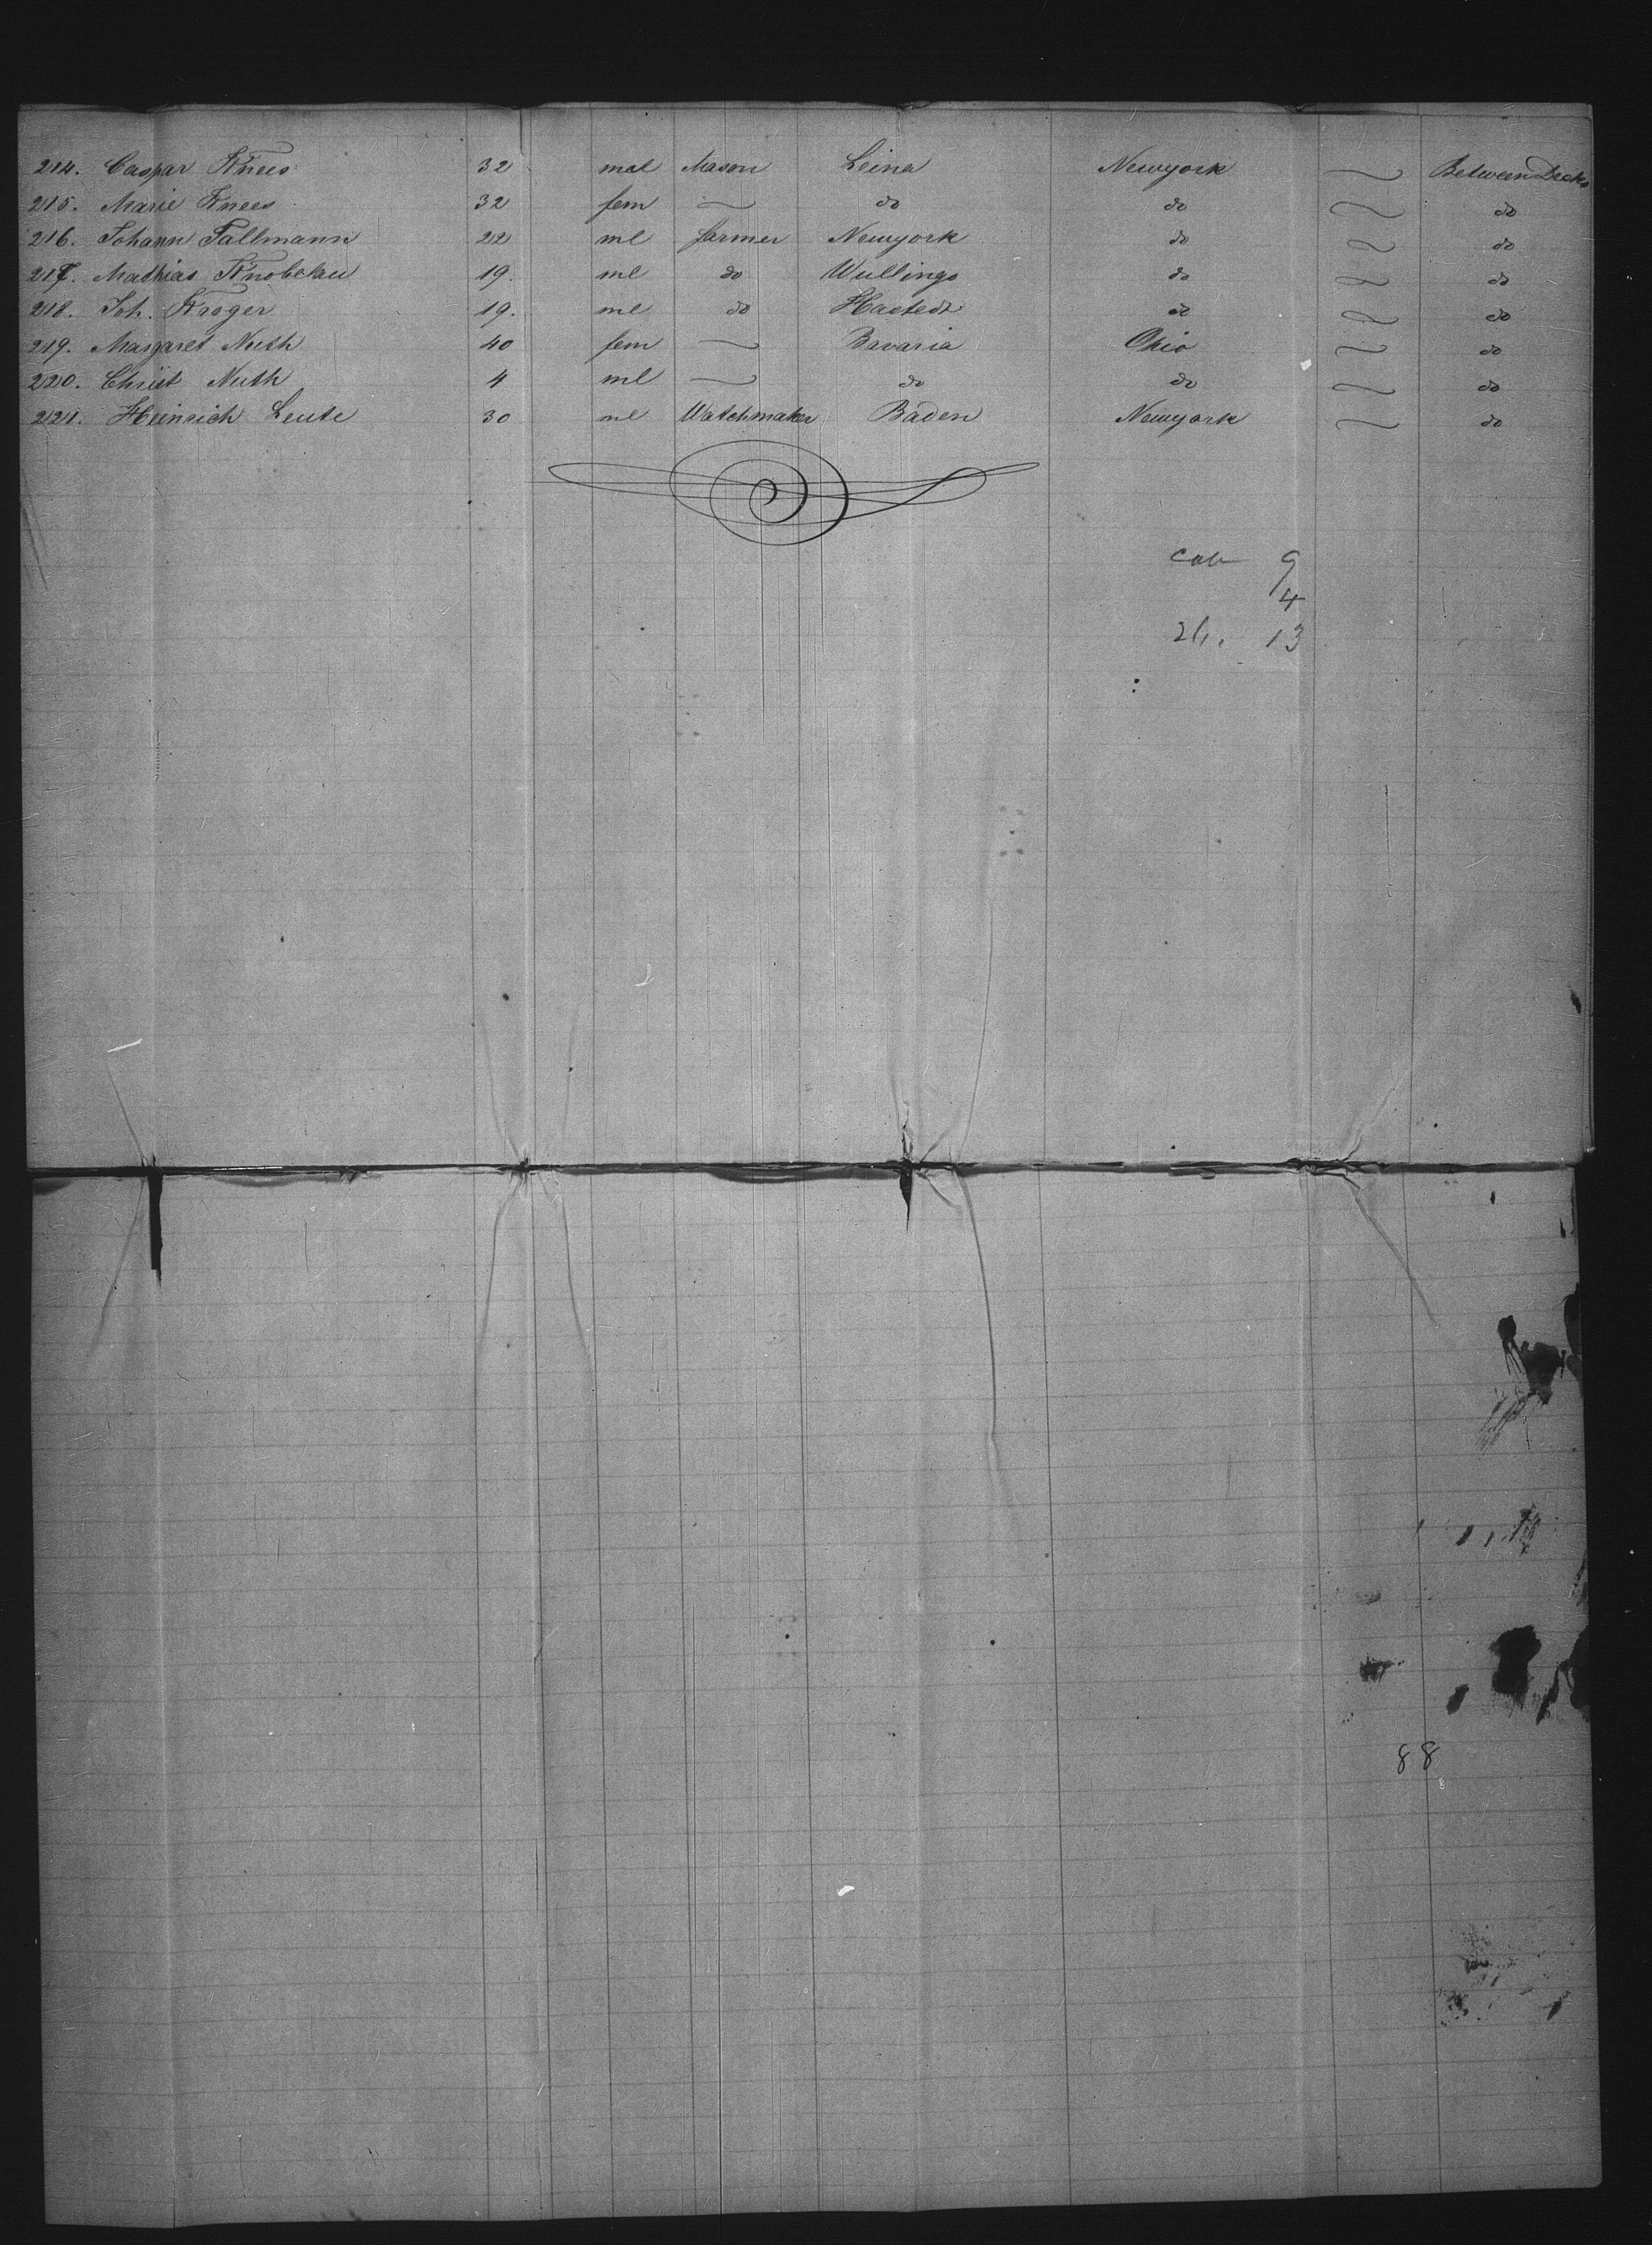 214. Caspar Knees 32 mal Mason Leina Newyork ~ Between Decks
215. Marie Knees 32 fem — do do ~ do
216. Johann Tallmann 22 ml farmer Newyork do ~ do
217. Mathias Knobelau 19. ml do Wullings do ~ do
218. Joh. Kroger 19. ml do Hastedt do ~ do
219. Margaret Nuth 40 fem — Bavaria Ohio ~ do
220. Christ Nuth 4 ml — do do ~ do
221. Heinrich Leute 30 ml Watchmaker Baden Newyork ~ do
cab 9
4
13
88